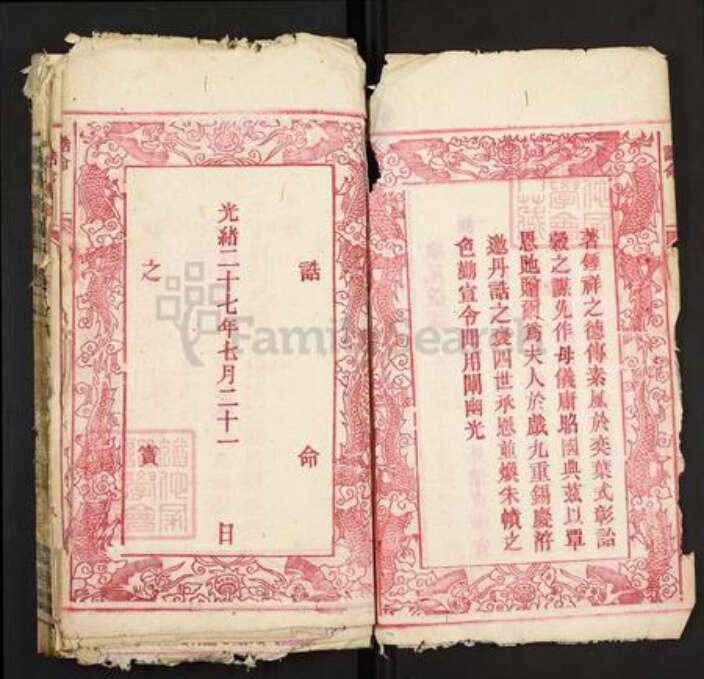 著鍾祥之德傳素風於奕葉式彰詒
穀之謀允作母儀庸昭國典茲以覃
恩貤贈爾爲夫人於戲九重錫慶洊
邀丹誥之褒四世承恩並煥朱幩之
色宣令問用闡幽光
誥命
光緒二十七年七月二十一日
之寶
FamilySearch